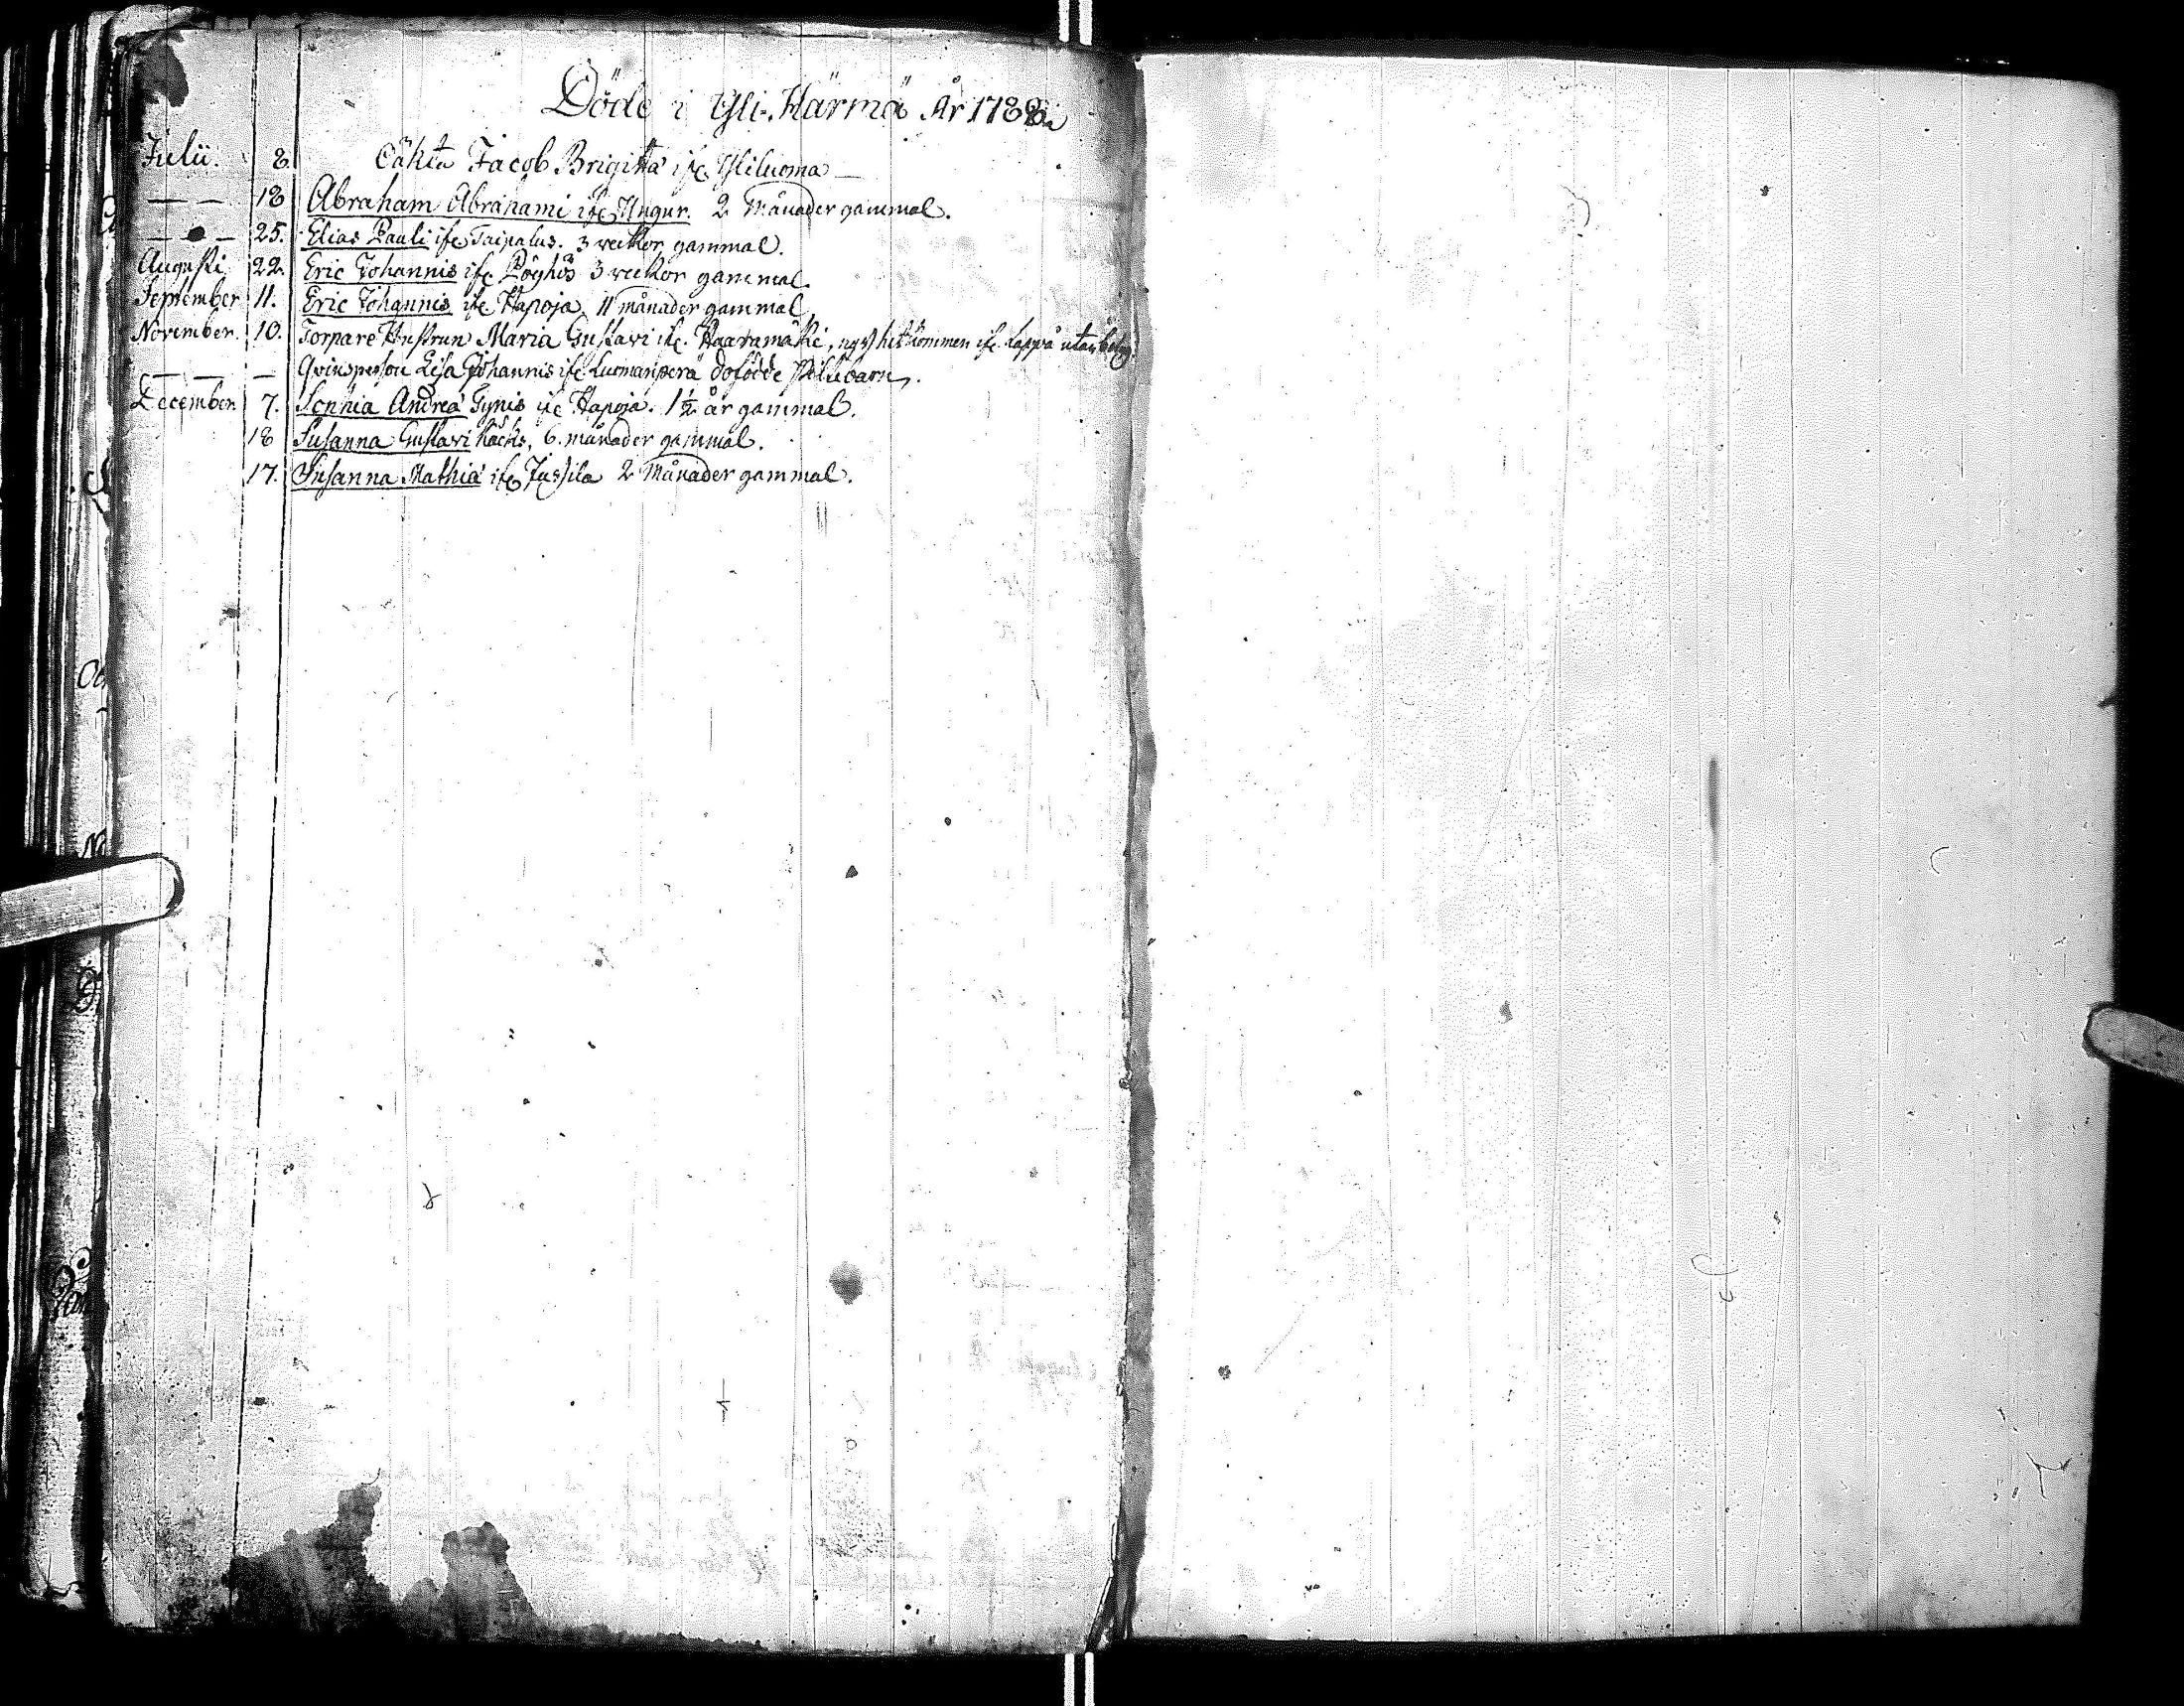 Döde i Yli-Härmä År 1788.
Julii. 8. Oäkta Jacob Brigitta ifr. Yliluoma —
— — 18 Abraham Abrahami ifr. Ungur. 2 Månader gammal.
— — 25. Elias Pauli ifr. Taipalus. 3 veckor gammal.
Augusti 22. Eric Johannis ifr. Pöyhös 3 veckor gammal.
September 11. Eric Johannis ifr. Hapoja, 11 månader gammal
November. 10. Torpare Hustrun Maria Gustavi ifr. Haaramäki, nys hitkommen ifr. Lappå utan
— — — Qvinsperson Lisa Johannis ifr. Luomanperä döfödde barn.
December. 7. Sophia Andreä Tynis ifr. Hapoja. 1½ år gammal.
18 Susanna Gustavi Kåcks, 6. månader gammal.
17. Susanna Mathiä ifr. Jussila 2 Månader gammal.